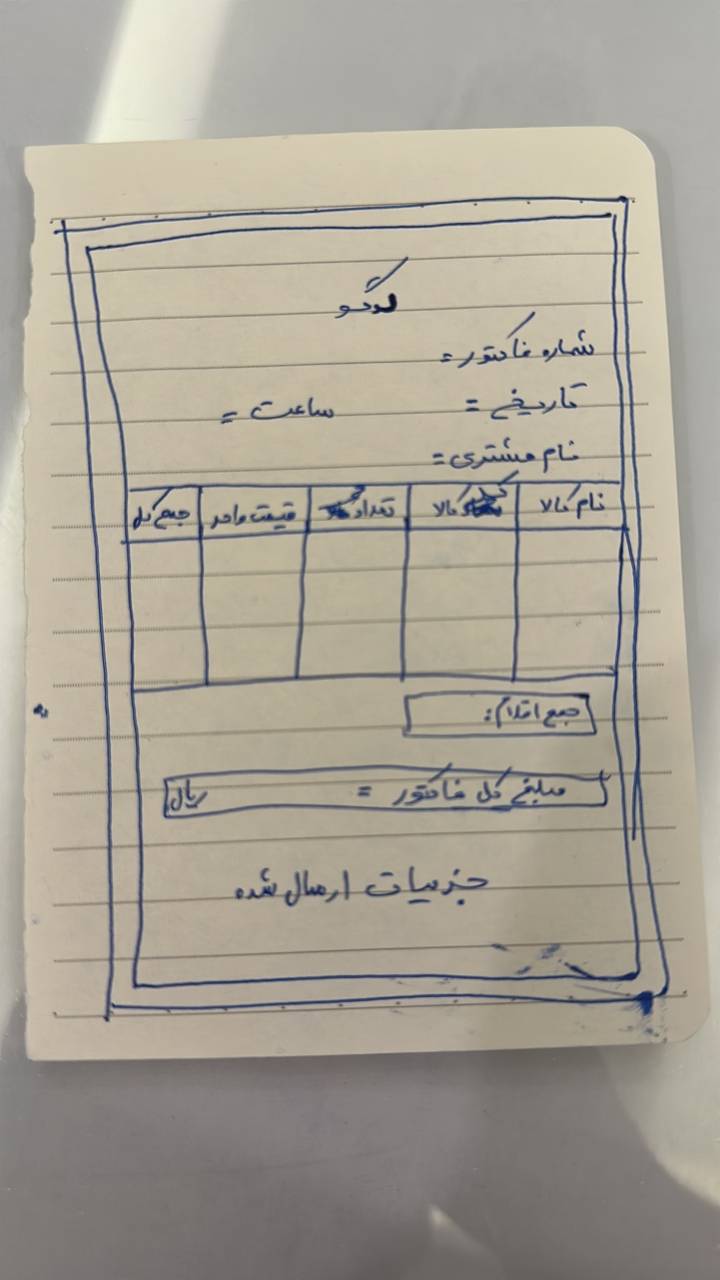 لوگو
شماره فاکتور =
تاریخ = ساعت =
نام مشتری =
نام کالا کد کالا تعداد قیمت واحد جمع کل
جمع اقلام :
مبلغ کل فاکتور = ریال
جزییات ارسال شده